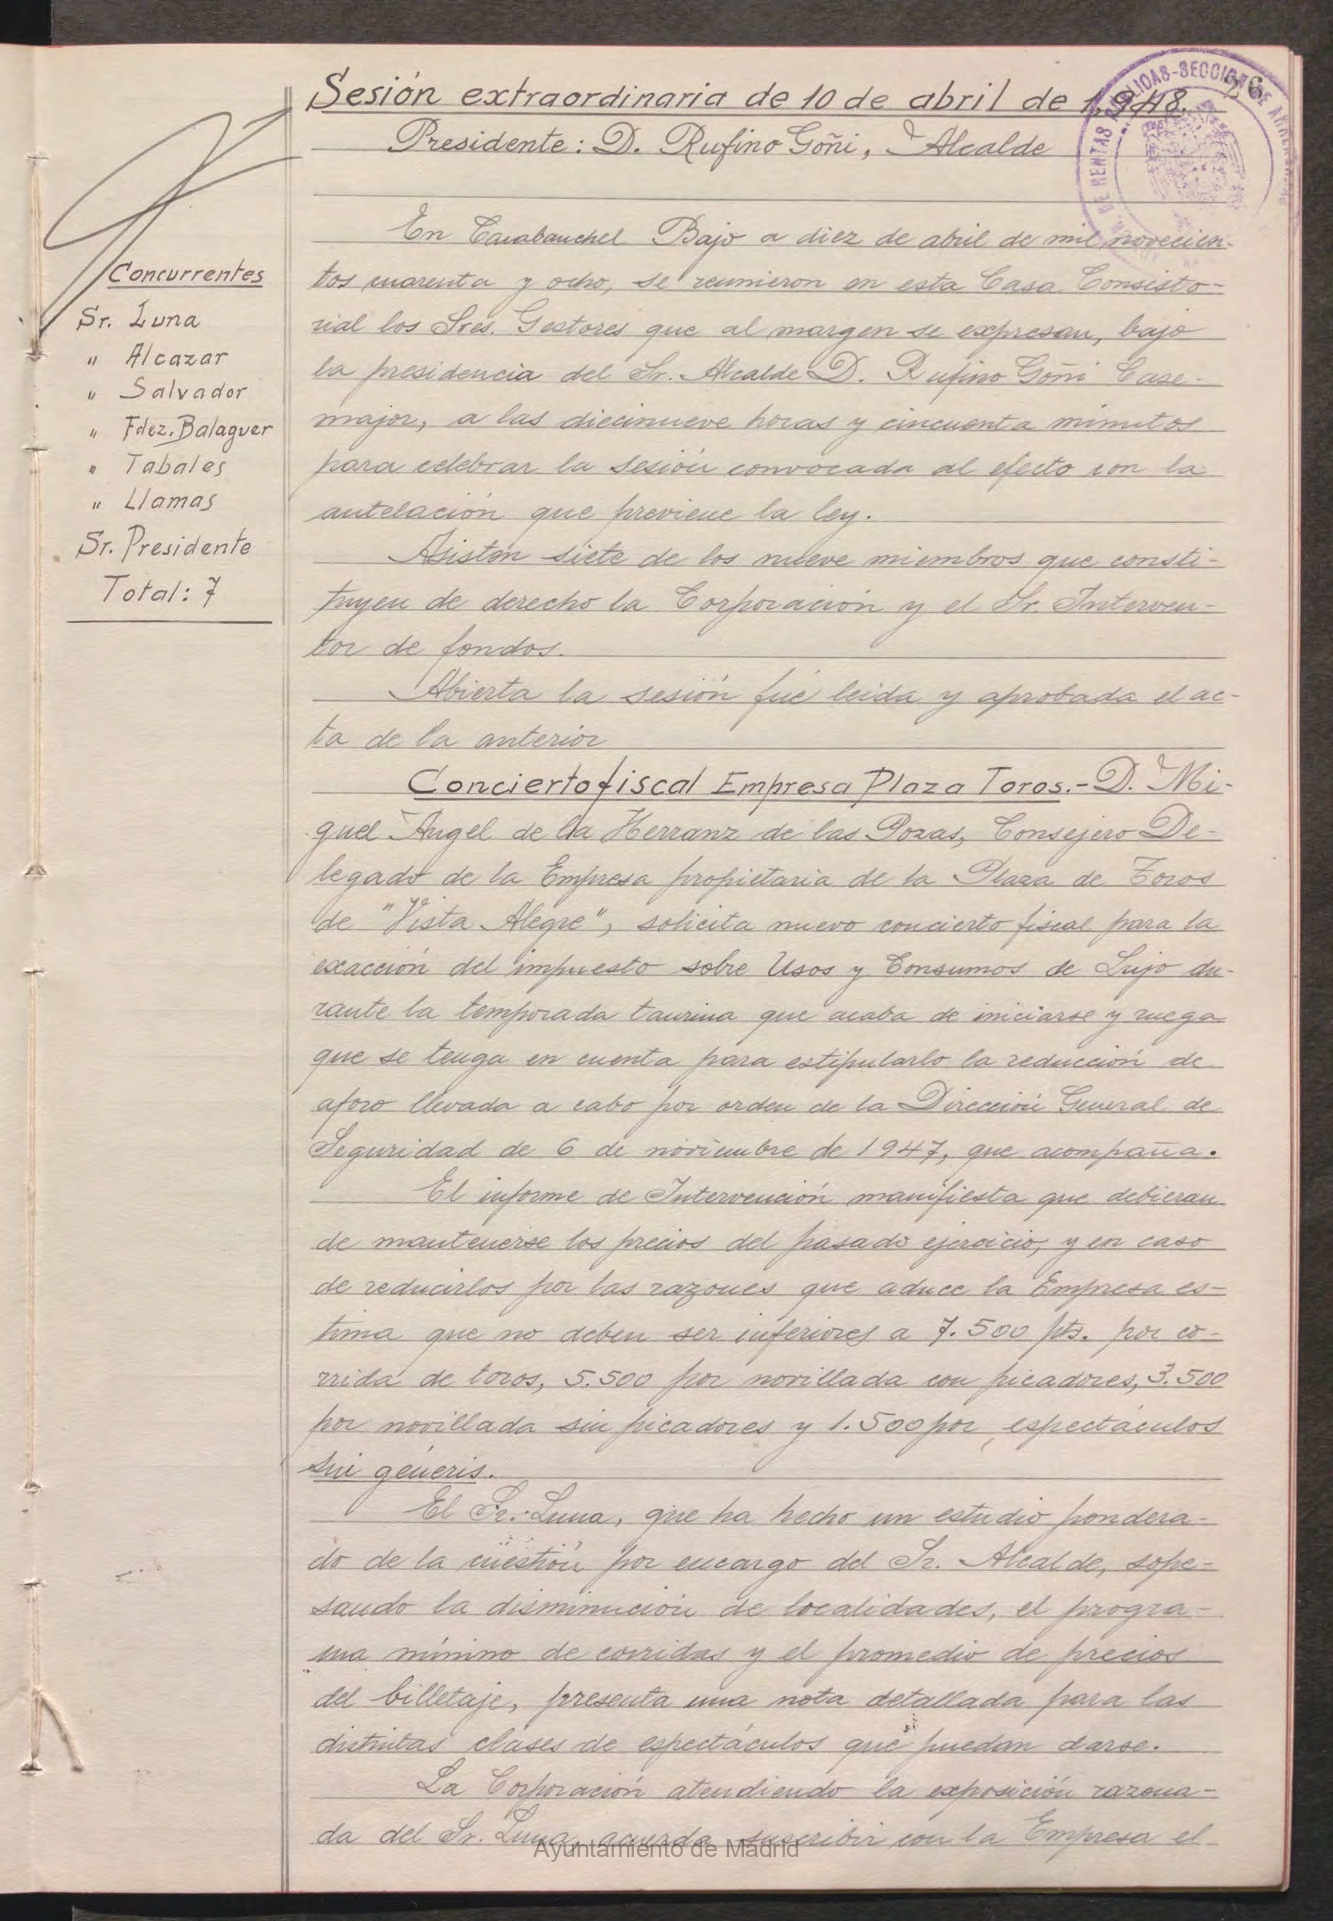 26
Sesión extraordinaria de 10 de abril de 1.948.
Presidente: D. Rufino Goñi, Alcalde
Concurrentes
Sr. Luna
" Alcazar
" Salvador
" Fdez. Balaguer
" Tabales
" Llamas
Sr. Presidente
Total: 7
En Carabanchel Bajo a diez de abril de mil novecien-
tos cuarenta y ocho, se reunieron en esta Casa Consisto-
rial los Sres. Gestores que al margen se expresan, bajo
la presidencia del Sr. Alcalde D. Rufino Goñi Case-
major, a las diecinueve horas y cincuenta minutos
para celebrar la sesión convocada al efecto con la
antelación que previene la ley.
Asisten siete de los nueve miembros que consti-
tuyen de derecho la Corporación y el Sr. Interven-
tor de fondos.
Abierta la sesión fué leida y aprobada el ac-
ta de la anterior
Concierto fiscal Empresa Plaza Toros.- D. Mi-
guel Angel de la Herranz de las Pozas, Consejero De-
legado de la Empresa propietaria de la Plaza de Toros
de "Vista Alegre", solicita nuevo concierto fiscal para la
exacción del impuesto sobre Usos y Consumos de Lujo du-
rante la temporada taurina que acaba de iniciarse y ruega
que se tenga en cuenta para estipularlo la reducción de
aforo llevada a cabo por orden de la Dirección General de
Seguridad de 6 de noviembre de 1947, que acompaña.
El informe de Intervención manifiesta que debieran
de mantenerse los precios del pasado ejercicio, y en caso
de reducirlos por las razones que aduce la Empresa es-
tima que no deben ser inferiores a 7.500 pts. por co-
rrida de toros, 5.500 por novillada con picadores, 3.500
por novillada sin picadores y 1.500 por espectáculos
sui géneris.
El Sr. Luna, que ha hecho un estudio pondera-
do de la cuestión por encargo del Sr. Alcalde, sope-
sando la disminución de localidades, el progra-
ma mínimo de corridas y el promedio de precios
del billetaje, presenta una nota detallada para las
distintas clases de espectáculos que puedan darse.
La Corporación atendiendo la exposición razona-
da del Sr. Luna, acuerda suscribir con la Empresa el
Ayuntamiento de Madrid